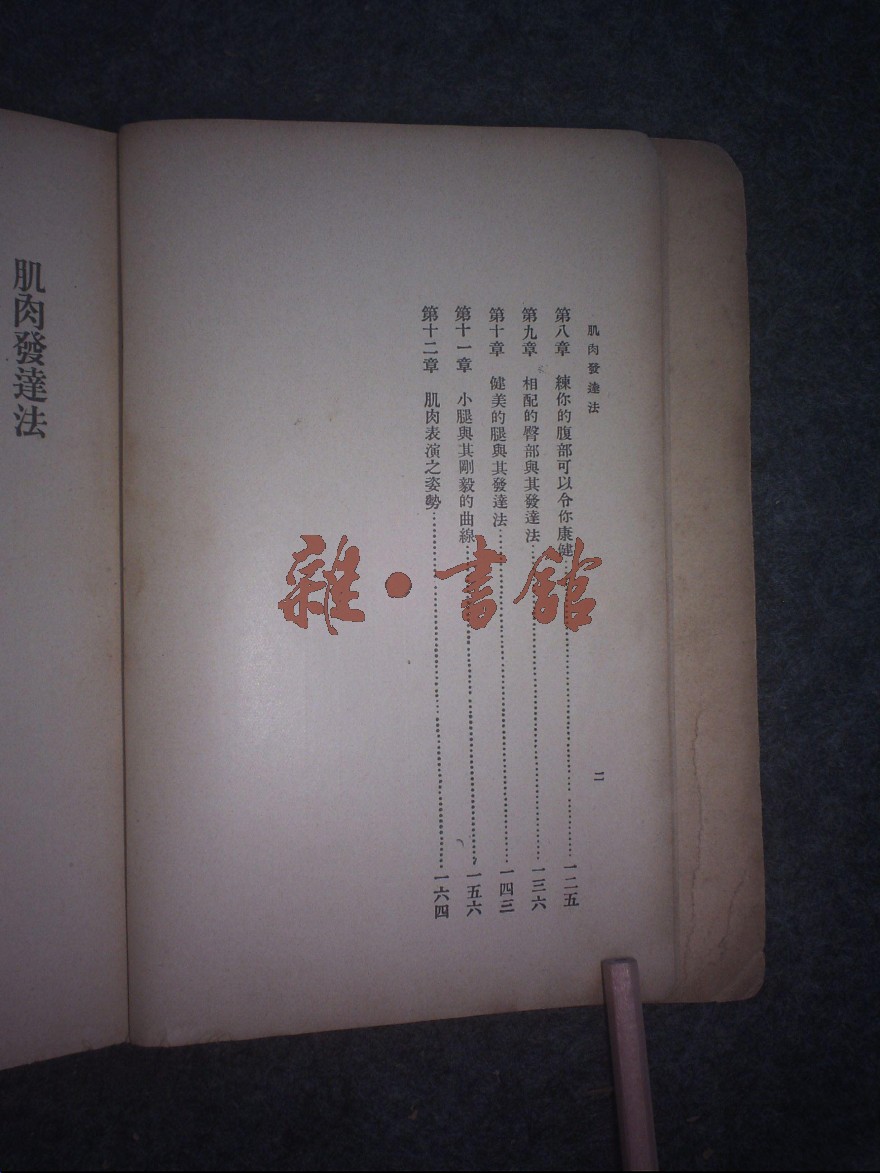 肌肉發達法
二
第八章 練你的腹部可以令你康健一二五
第九章 相配的臀部與其發達法一三六
第十章 健美的腿與其發達法一四三
第十一章 小腿與其剛毅的曲線一五六
第十二章 肌肉表演之姿勢一六四
肌肉發達法
雜•書館